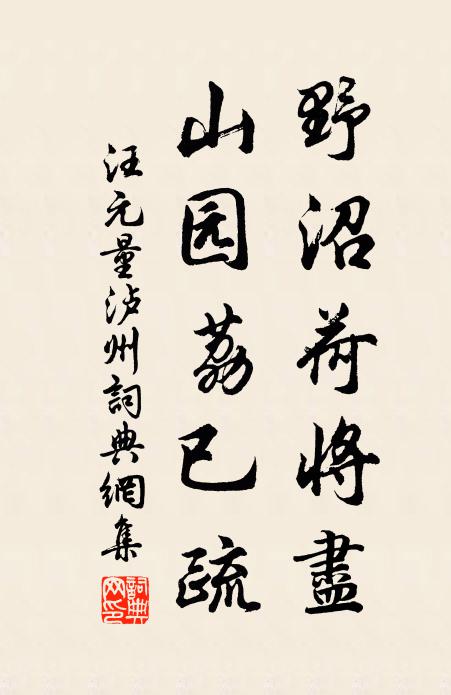 野沼荷將盡
山园荔已疏
汪元量泸州詞典網集
詞典网印